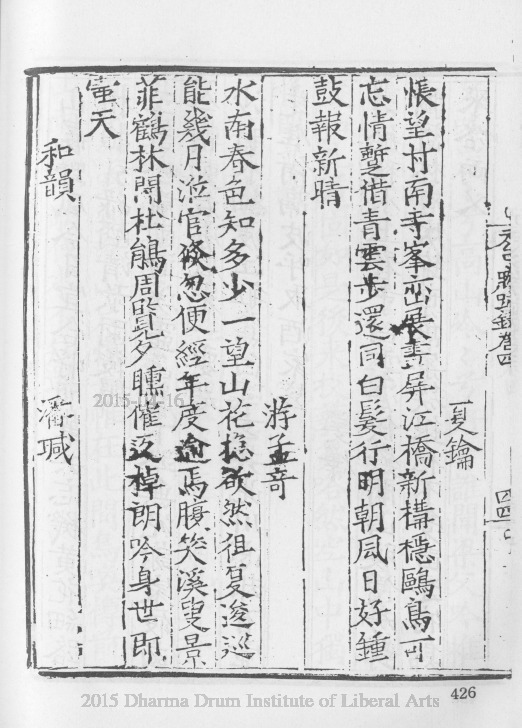 夏鑰
悵望村南寺峯巒展畫屏江橋新構穩鷗鳥可
忘情蹔借青雲步還同白髮行明朝風日好鍾
鼓報新晴
游孟奇
水南春色知多少一望山花穩欲然徂夏逡巡
能幾月涖官倏忽便經年度逾馬腹笑溪叟景
菲鶴林閒杜鵑周覽夕曛催返棹朗吟身世即
壷天
和韻 潘瑊
426
2015 Dharma Drum Institute of Liberal Arts